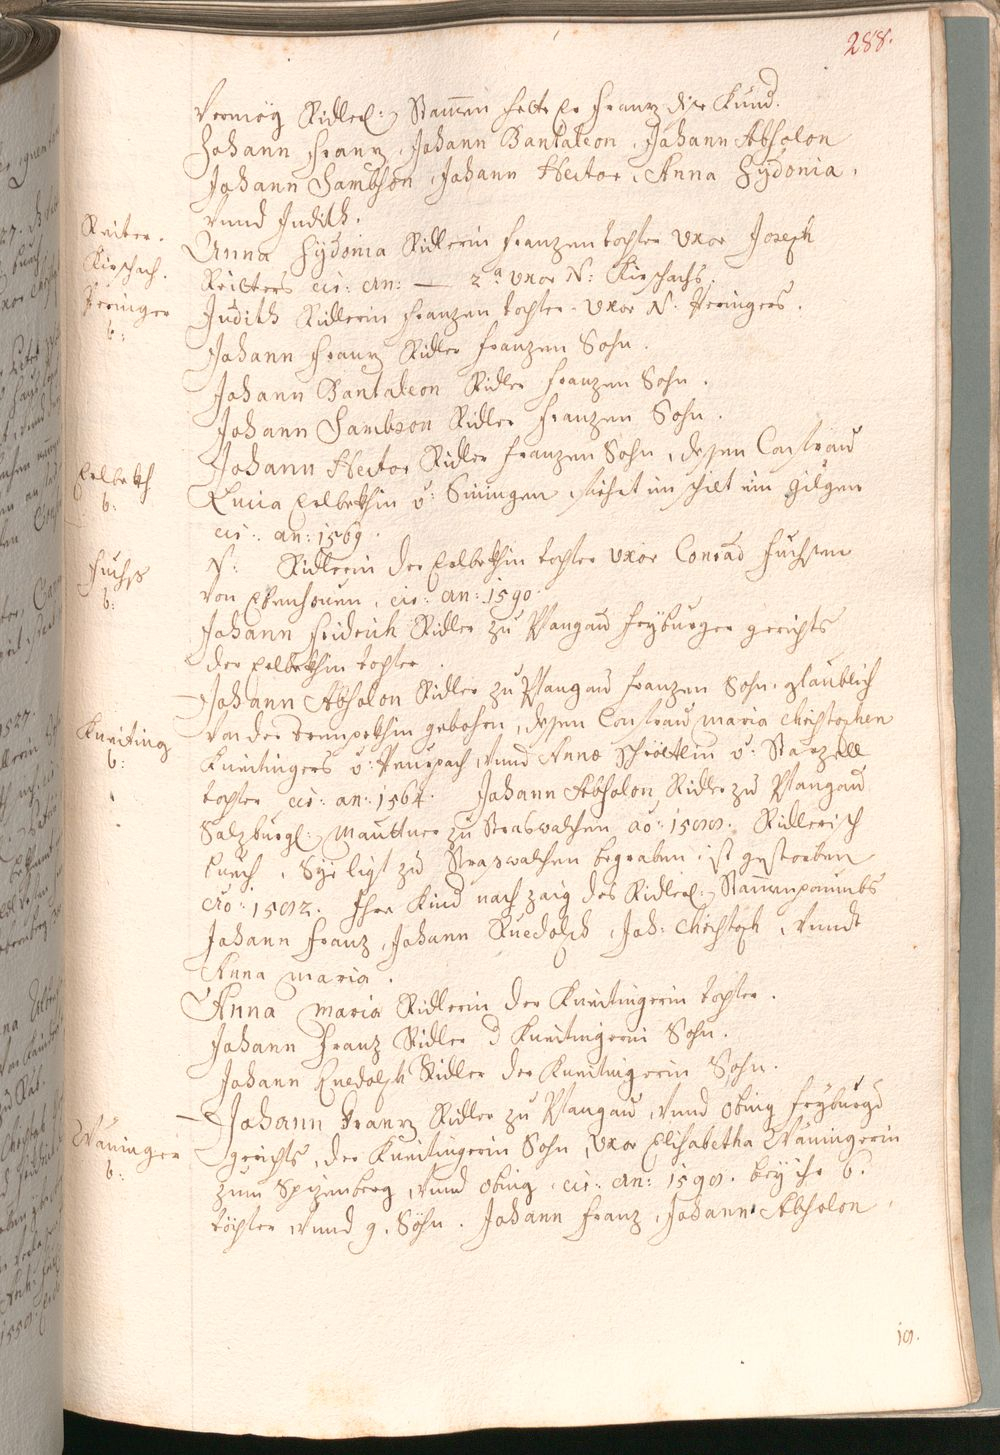 288.
Vermög Ridler: Stammen hette Er Franz dise Kind.
Johann Franz, Johann Bantaleon, Johann Abholon
Johann Sambson, Johann Hector, Anna Sydonia,
vnnd Judith.
Reiter.
Anna Sydonia Ridlerin Franzen tochter Uxor Joseph
Kirschach.
Reitters cir: an: — 2.a Uxor N: Kirschachs.
Heringer
Judith Ridlerin Franzen tochter. Uxor N. Heringers.
b:
Johann Franz Ridler Franzen Sohn.
Johann Bantaleon Ridler Franzen Sohn.
Johann Sambson Ridler Franzen Sohn.
Johann Hector Ridler Franzen Sohn, dessen Consfrau
Erlbekh
Lucia Erlbekhin v: Siningen, fiehrt im schilt ein Gilgen
b:
cir: an: 1569.
Fuchs
N: Ridlerin der Erlbekhin tochter Uxor Conrad Fuchsen
b:
von Ebenhouen, cir: an: 1590.
Johann Fridrich Ridler zu Wangau Freyburger gerichts
der Erlbekhin tochter.
Johann Abholon Ridler zu Wangau Franzen Sohn, glaublich
von der gebohren, dessen Consfrau Maria Christophen
Kneiting
Kneitingers v: vnnd Annæ v: Starzell
b:
tochter cir: an: 1564. Johann Abholon Ridler zu Wangau
Salzburgl: Mauttner zu Straswalchen ao: Ridlerisch
buech, Sye ligt zu Straswalchen begraben, ist gestorben
Ihre Kind nach zaig des Ridler: Stammenpaumbs
Johann Franz, Johann Ruedolph, Joh: Christoph, vnndt
Anna Maria.
Anna Maria Ridlerin der Kneitingerin tochter.
Johann Franz Ridler d Kneitingerin Sohn.
Johann Ruedolph Ridler der Kneitingerin Sohn.
Johann Franz Ridler zu Wangau, vnnd obing Freyburgd
Wäninger
gerichts, der Kneitingerin Sohn, Uxor Elisabetha Wäningerin
b:
zum Spizenberg, vnnd obing, cir: an: bey ihr 6.
töchter, vnnd 9. Söhn. Johann Franz, Johann Abholon,